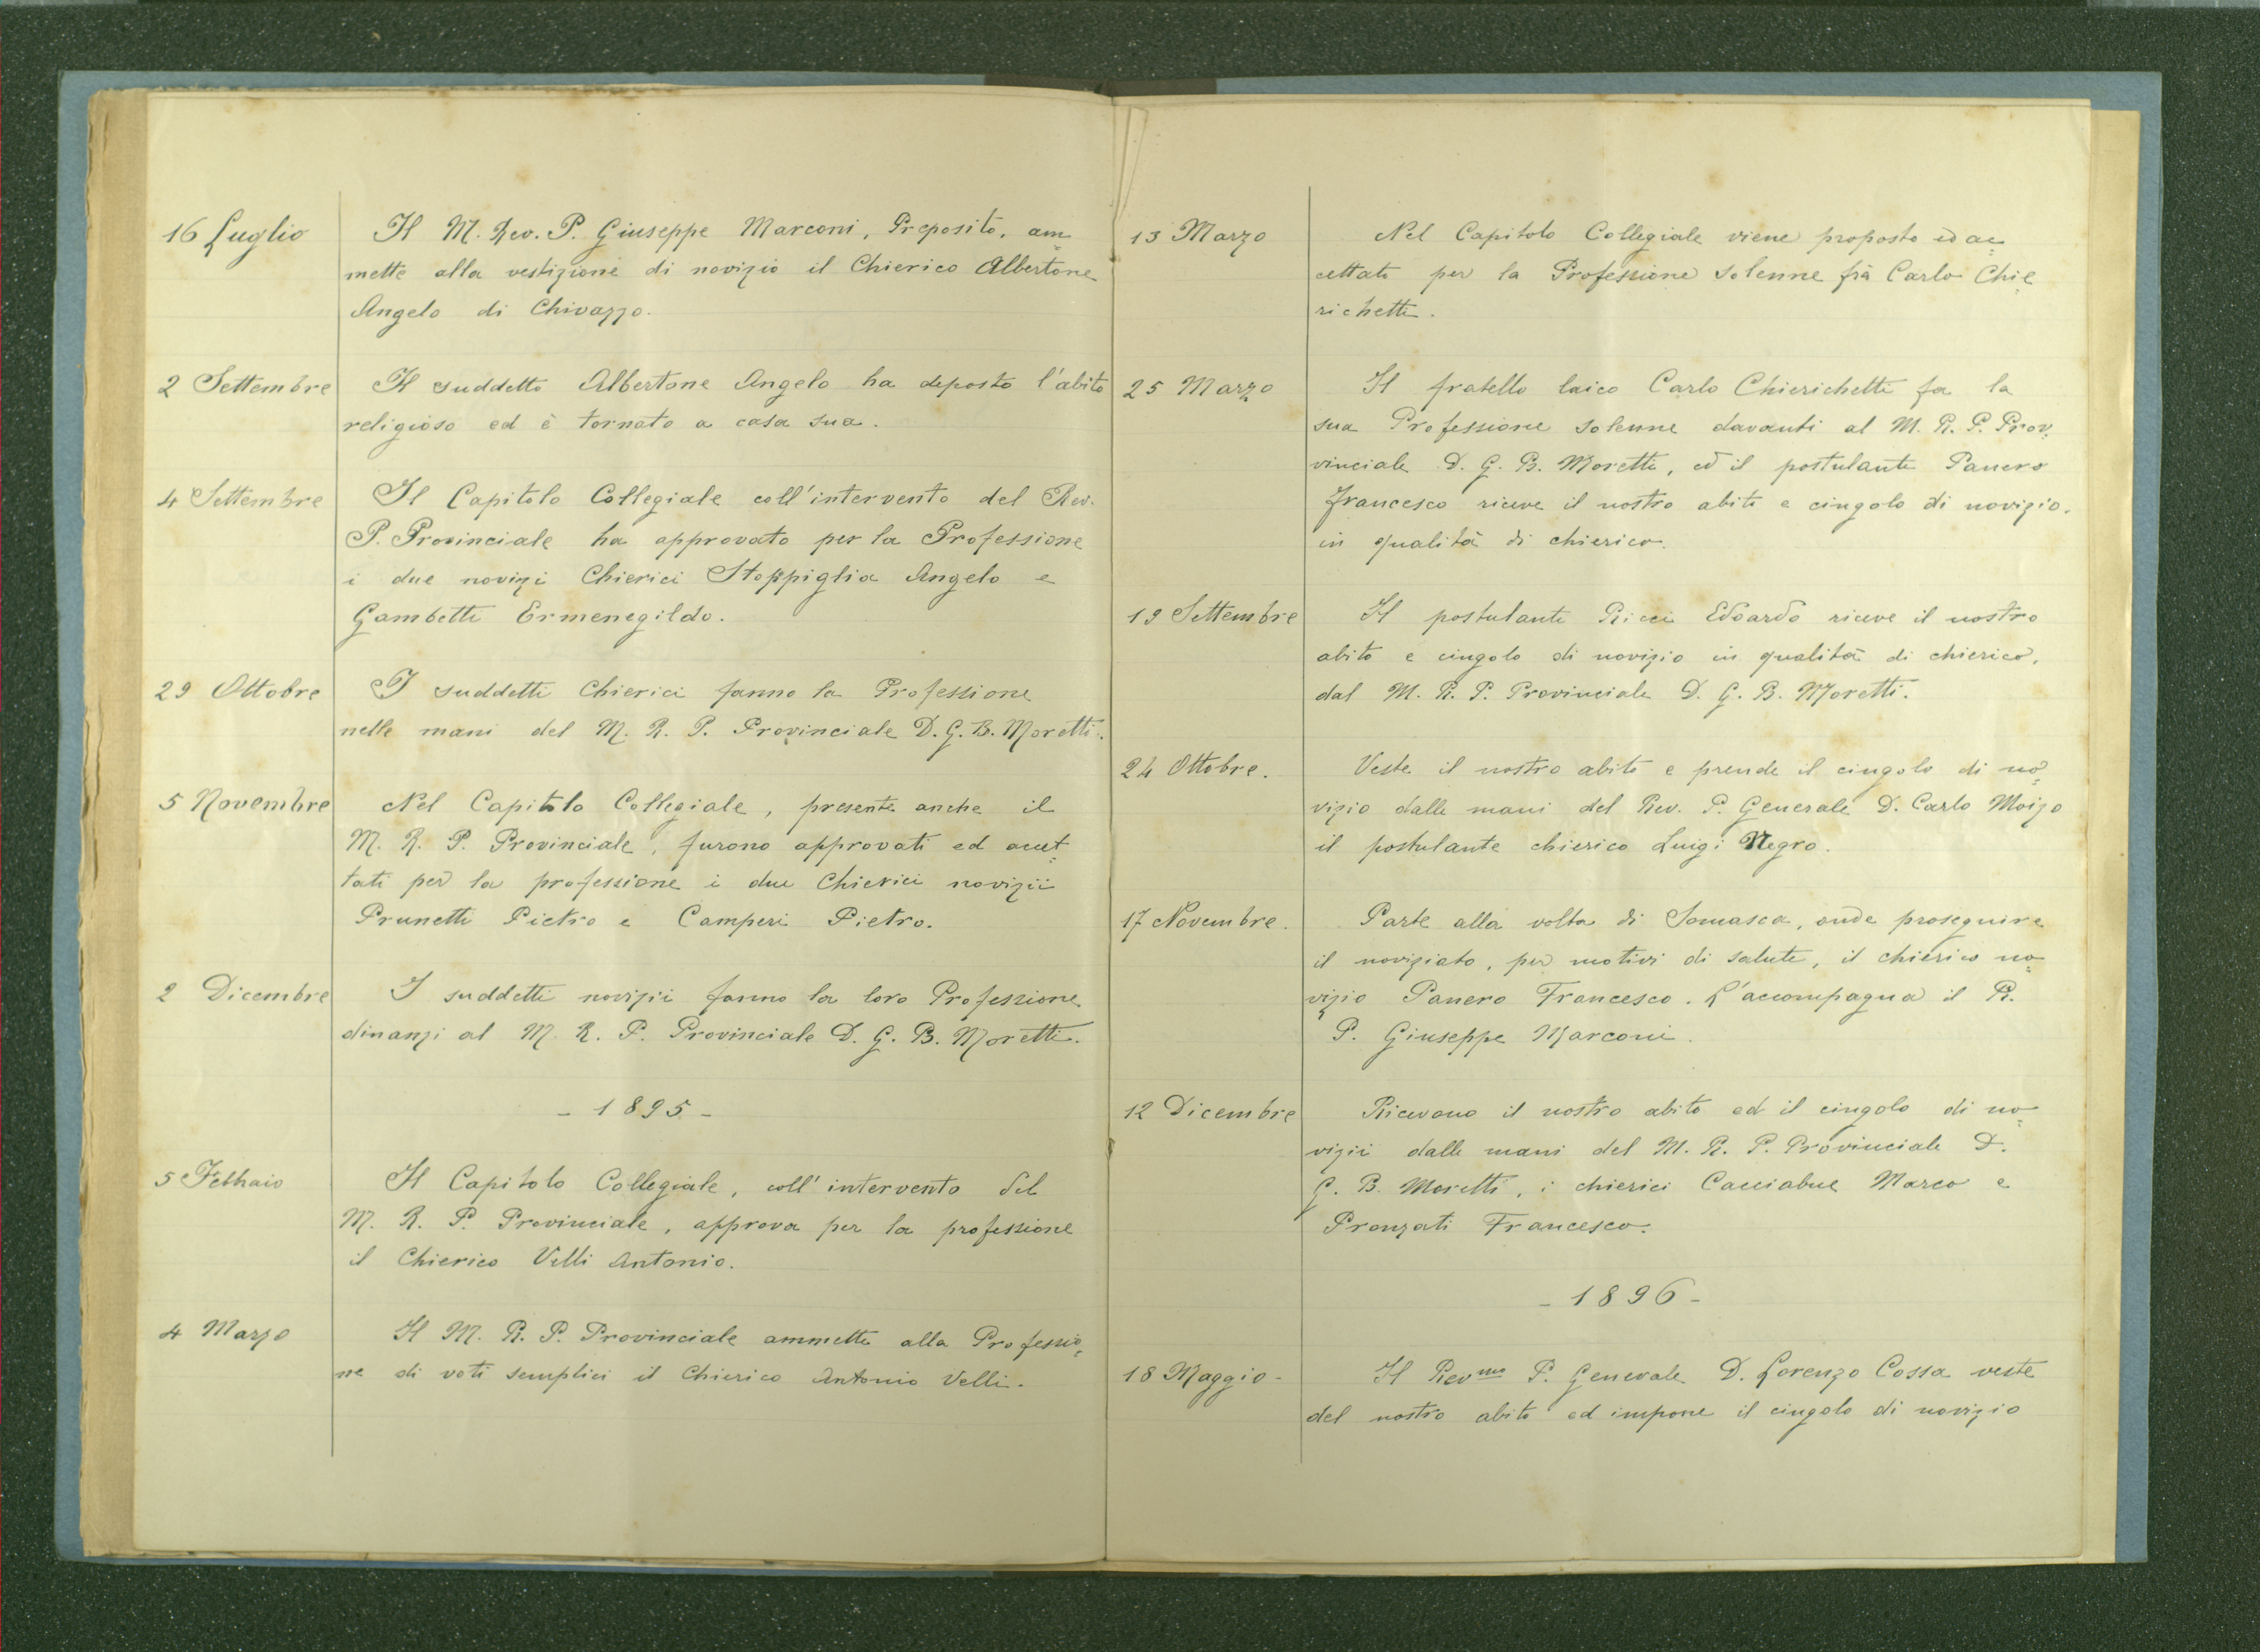 16 Luglio
Il M. Rev. P. Giuseppe Marconi, Preposito, am=
mette alla vestizione di novizio il Chierico Albertone
Angelo di Chivazzo.
2 Settembre
Il suddetto Albertone Angelo ha deposto l'abito
religioso ed è tornato a casa sua.
4 Settembre
Il Capitolo Collegiale coll'intervento del Rev.
P. Provinciale ha approvato per la Professione
i due novizi Chierici Stoppiglia Angelo e
Gambetti Ermenegildo.
29 Ottobre
I suddetti Chierici fanno la Professione
nelle mani del M. R. P. Provinciale D. G. B. Moretti.
5 Novembre
Nel Capitolo Collegiale, presente anche il
M. R. P. Provinciale, furono approvati ed accet=
tati per la professione i due Chierici novizii
Prunetti Pietro e Camperi Pietro.
2 Dicembre
I suddetti novizii fanno la loro Professione
dinanzi al M. R. P. Provinciale D. G. B. Moretti.
- 1895 -
5 Febbraio
Il Capitolo Collegiale, coll' intervento del
M. R. P. Provinciale, approva per la professione
il Chierico Velli Antonio.
4 Marzo
Il M. R. P. Provinciale ammette alla Professio=
ne di voti semplici il Chierico Antonio Velli.
13 Marzo
Nel Capitolo Collegiale viene proposto ed ac=
cettato per la Professione solenne frà Carlo Chie=
richetti.
25 Marzo
Il fratello laico Carlo Chierichetti fa la
sua Professione solenne davanti al M. R. P. Prov=
vinciale D. G. B. Moretti, ed il postulante Panero
Francesco riceve il nostro abito e cingolo di novizio,
in qualità di chierico.
19 Settembre
Il postulante Ricci Edoardo riceve il nostro
abito e cingolo di novizio in qualità di chierico,
dal M. R. P. Provinciale D. G. B. Moretti.
24 Ottobre.
Veste il nostro abito e prende il cingolo di no=
vizio dalle mani del Rev. P. Generale D. Carlo Moizo
il postulante chierico Luigi Negro.
17 Novembre.
Parte alla volta di Somasca, onde proseguire
il noviziato, per motivi di salute, il chierico no=
vizio Panero Francesco. L'accompagna il R.
P. Giuseppe Marconi.
12 Dicembre
Ricevono il nostro abito ed il cingolo di no=
vizii dalle mani del M. R. P. Provinciale D.
G. B. Moretti, i chierici Cacciabue Marco e
Pronzati Francesco.
- 1896 -
18 Maggio -
Il Revmo P. Generale D. Lorenzo Cossa veste
del nostro abito ed impone il cingolo di novizio